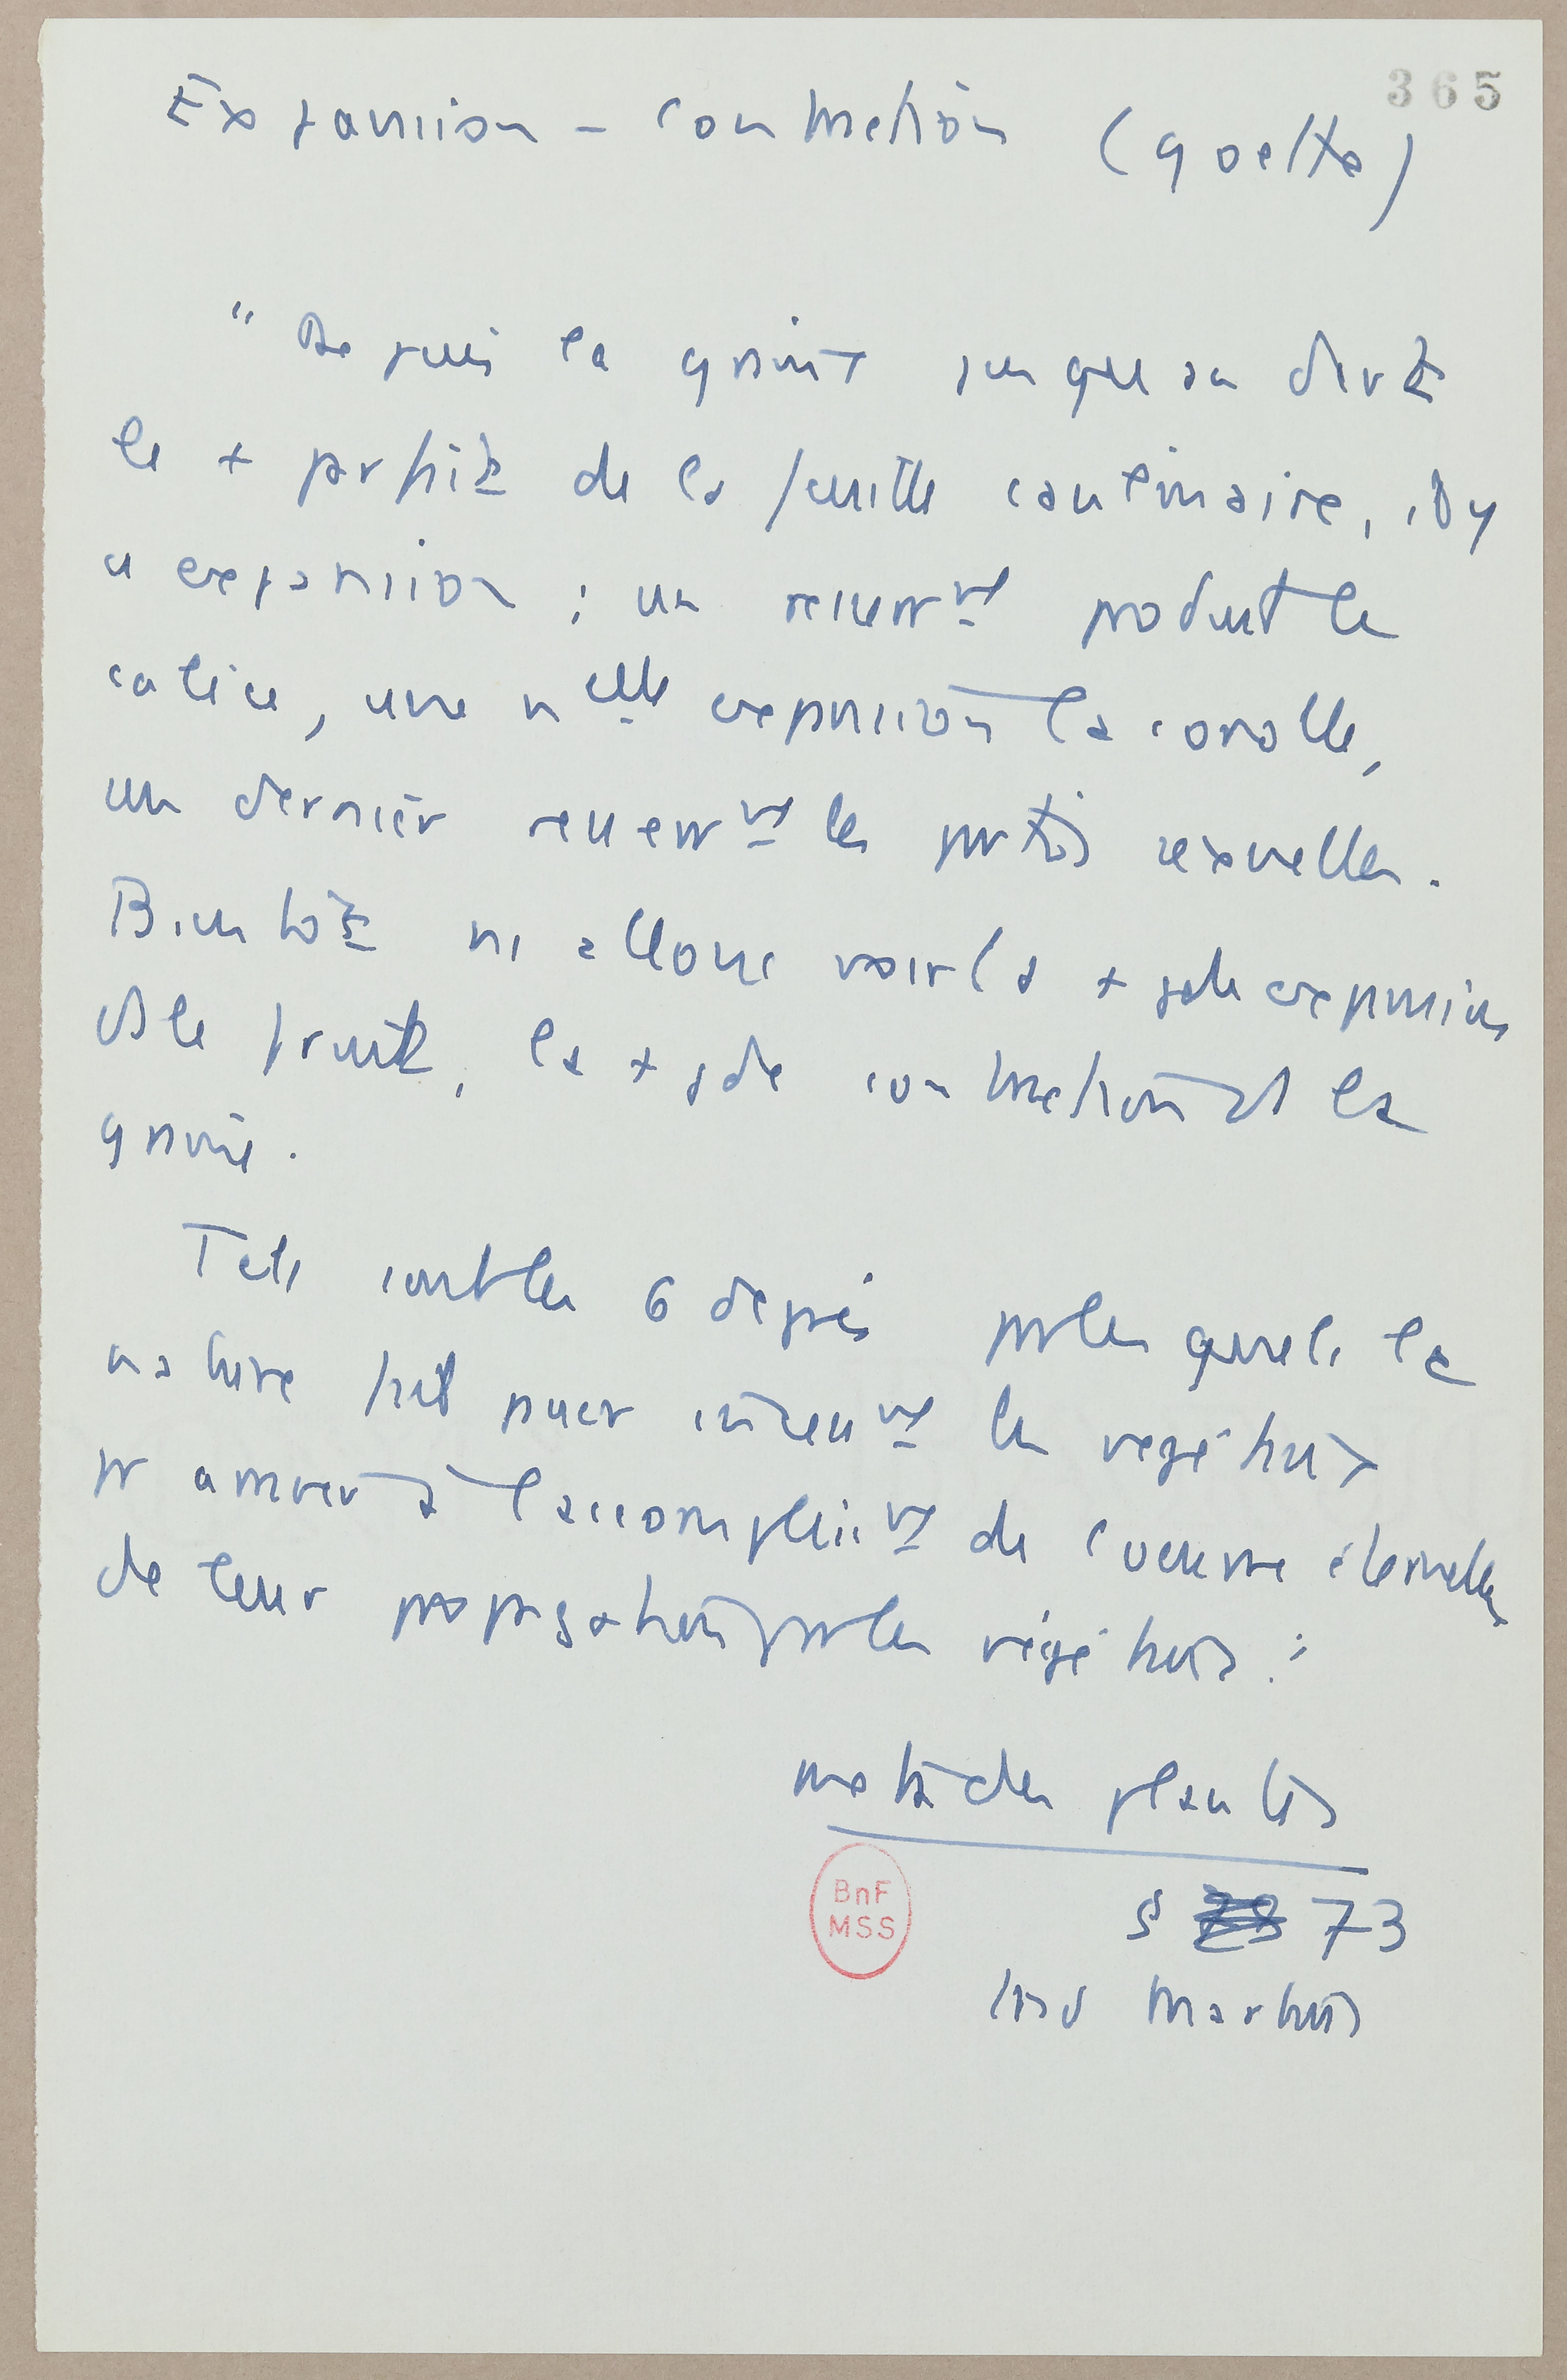 365
Expansion – contraction (Goethe)
" Depuis la graine jusqu'au dvt
le + parfait de la feuille caulinaire, il y
a expansion ; un resserrvt produit le
calice, une nelle expansion la corolle,
un dernier resserrvt les parties sexuelles.
Bientôt ns allons voir la + gde expansion
ds le fruit, la + gde contraction ds la
graine.
Tels sont les 6 degrés par lesquels la
nature fait passer les végétaux
pr arriver à l'accomplissvt de l'oeuvre éternelle
de leur propagation par les végétaux."
méta des plantes
§ 73
trad Martins
BnF
MSS